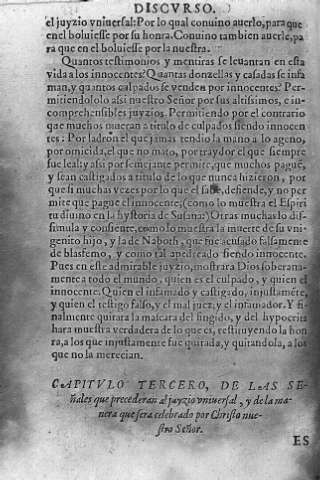 DISCVRSO.
el juyzio vniuersal: Por lo qual conuino auerlo, para que
en el boluiesse por su honra. Conuino tambien auerle, pa
ra que en el boluiesse por la nuestra.
Quantos testimonios y mentiras se leuantan en esta
vida a los innocentes? Quantas donzellas y casadas se infa
man, y quantos culpados se venden por innocentes? Per
mitiendololo assi nuestro Señor por sus altissimos, e in-
comprehensibles juyzios. Permitiendo por el contrario
que muchos mueran a titulo de culpados siendo innocen
tes: Por ladron el que jamas tendio la mano a lo ageno,
por omicida, el que no mato, por traydor el que siempre
fue leal: y assi por semejante permite, que muchos paguē,
y sean castigados a titulo de lo que nunca hizieron, por
que si muchas vezes por lo que el sabe, defiende, y no per
mite que pague el innocente, (como lo muestra el Espiri
tu diuino en la hystoria de Susana:) Otras muchas lo dis-
simula y consiente, como lo muestra la muerte de su vni-
genito hijo, y la de Naboth, que fue acusado falsamente
de blasfemo, y como tal apedreado siendo innocente.
Pues en este admirable juyzio, mostrara Dios soberana-
mente a todo el mundo, quien es el culpado, y quien el
innocente. Quien el infamado y castigado, injustamēte,
y quien el testigo falso, y el mal juez, y el infamador. Y fi-
nalmente quitara la mascara del fingido, y del hypocrita
hara muestra verdadera de lo que es, restituyendo la hon
ra, a los que injustamente fue quitada, y quitandola, a los
que no la merecian.
CAPITVLO TERCERO, DE LAS SE-
ñales que precederan al juyzio vniuersal, y de la ma-
nera que sera celebrado por Christo nue-
stro Señor.
ES